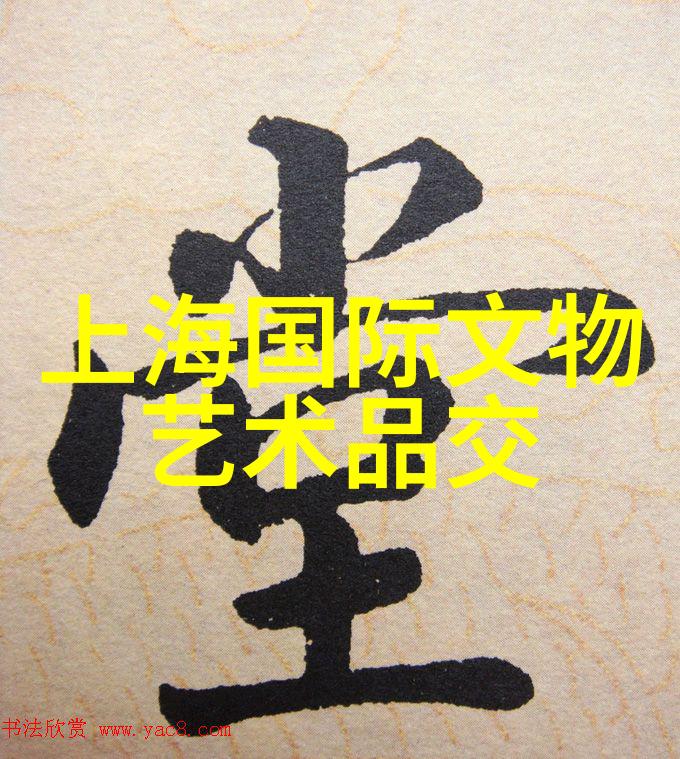 堂
上海国际文物
艺术品交
书法欣赏 www.yac8.com